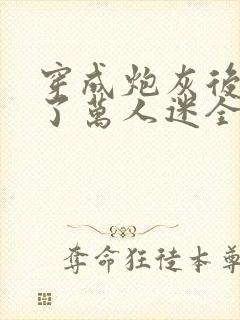 穿成炮灰後
了萬人迷全
奪命狂徒本尊